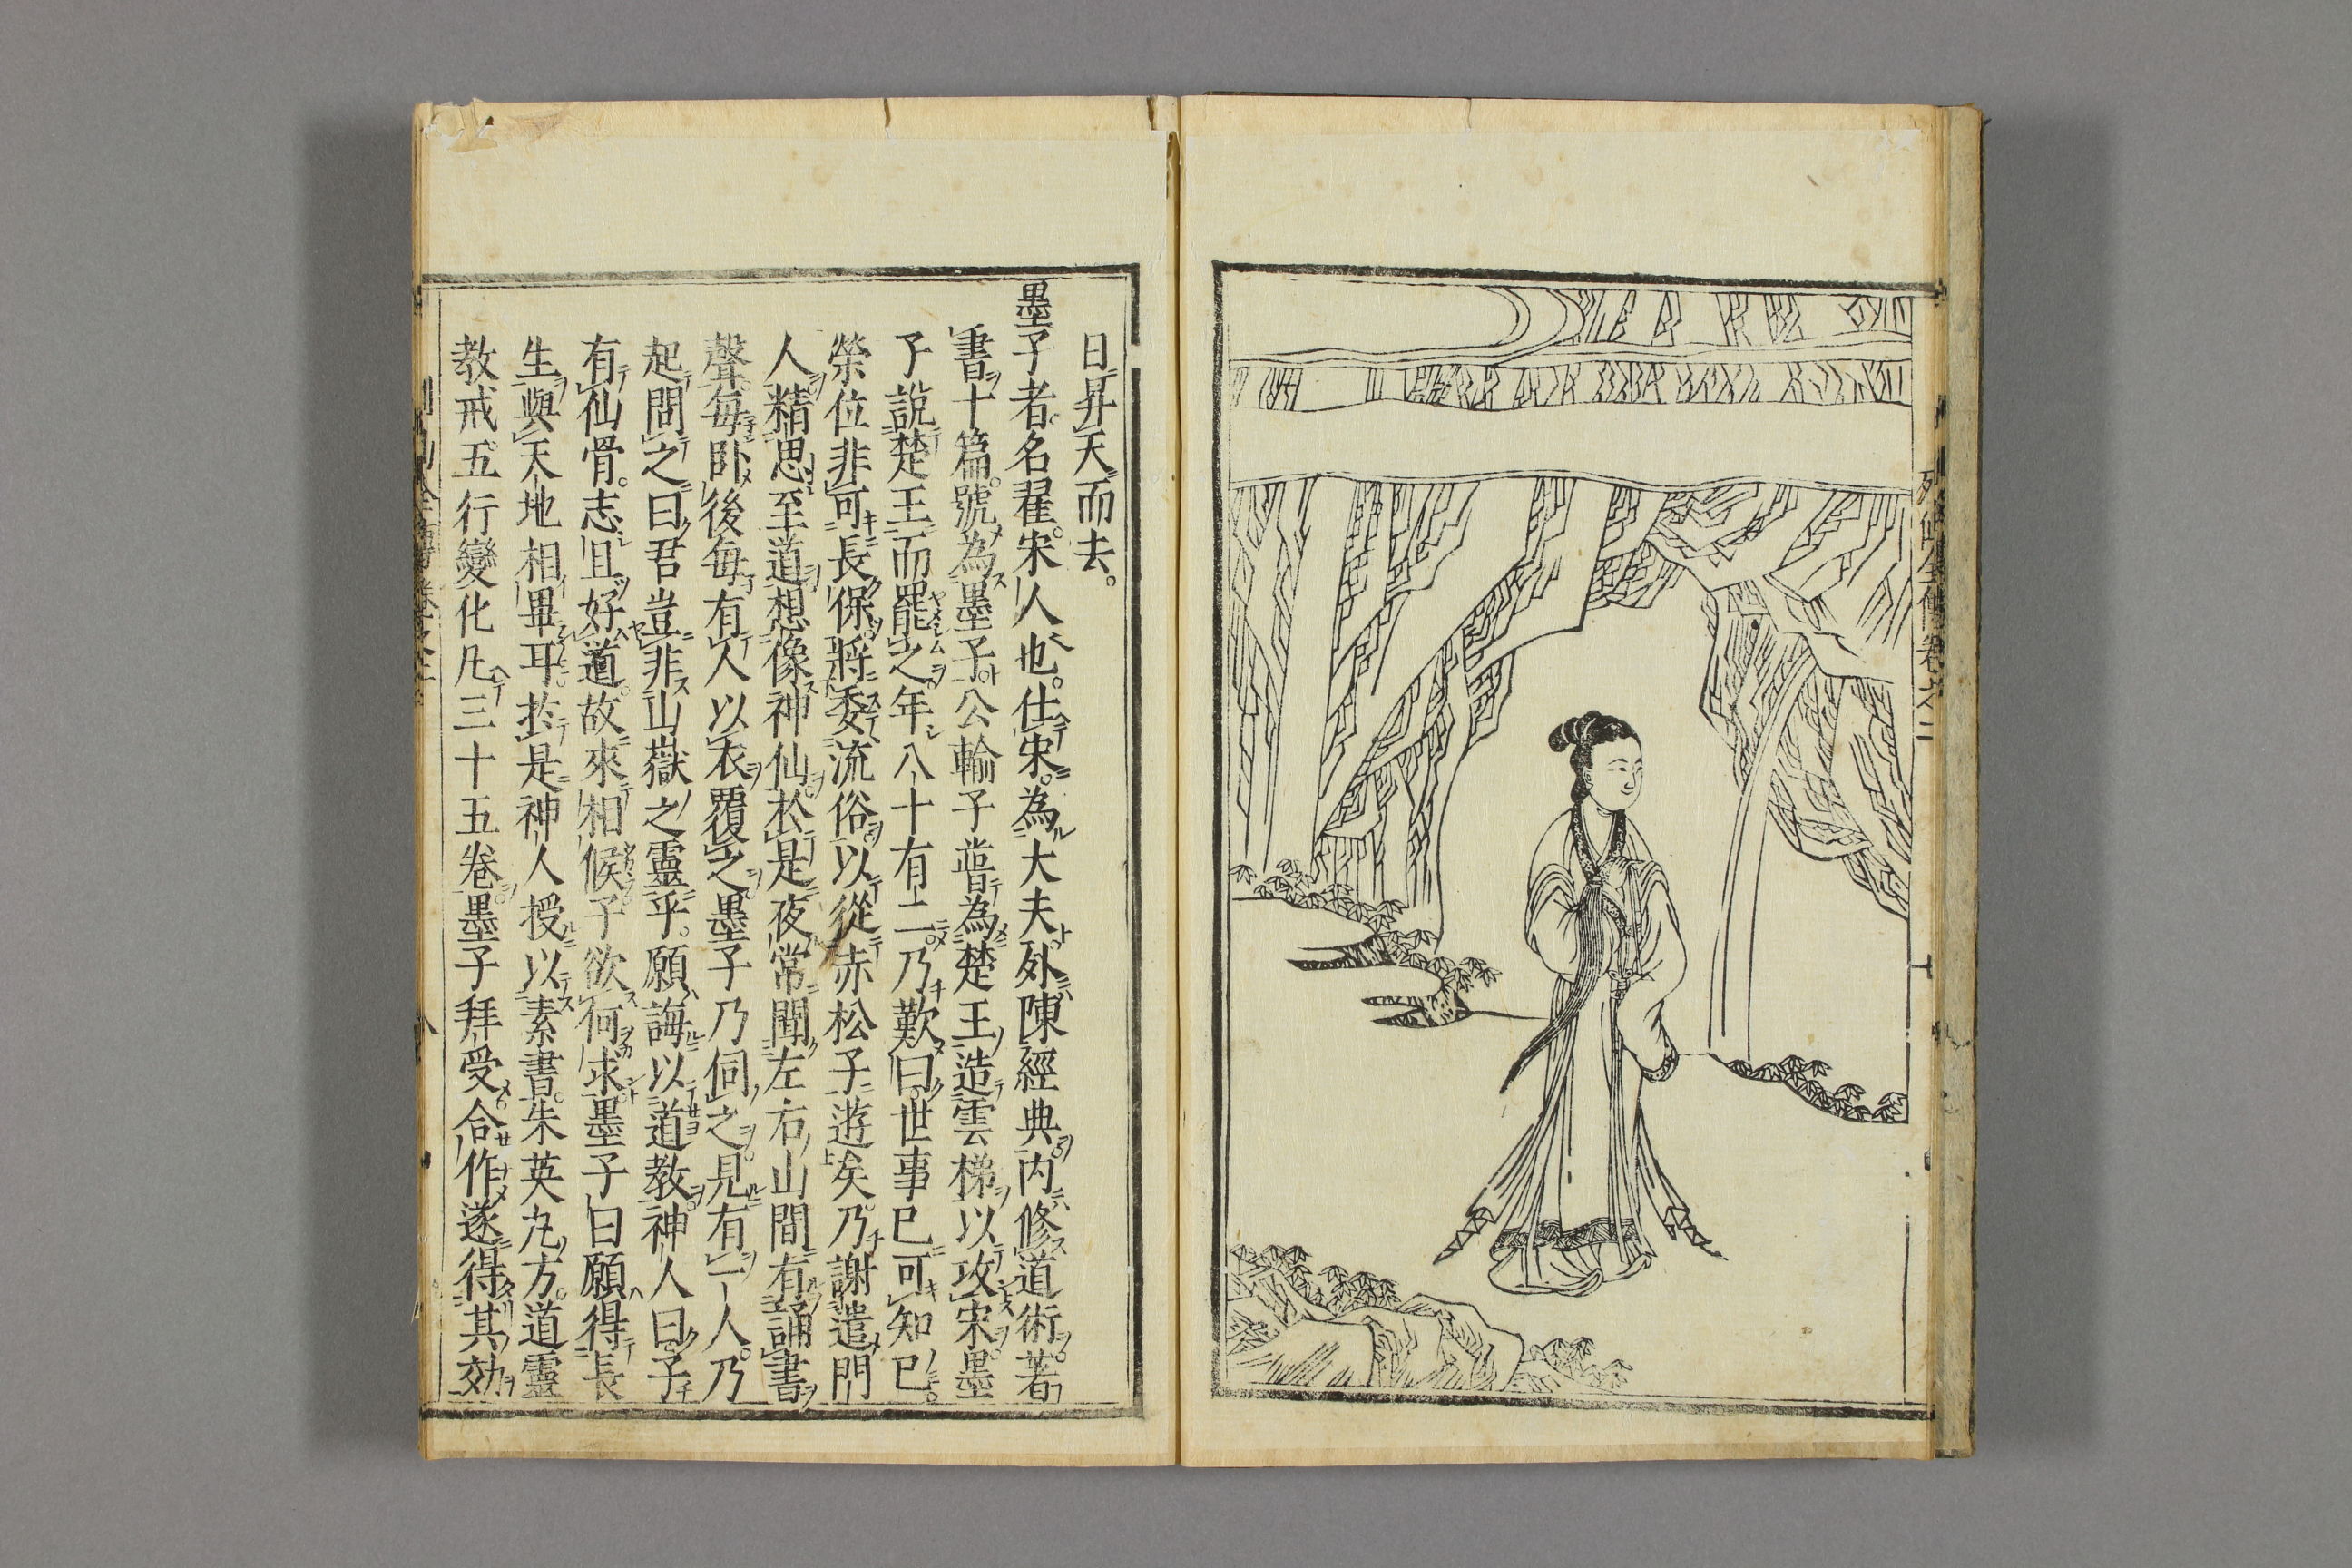 列仙全傳卷之二
日昇天而去。
墨子者。名翟。宋人也。仕宋。為大夫。外陳經典。內修道術。著
書十篇。號為墨子。公輸子嘗為楚王造雲梯以攻宋。墨
子說楚王而罷之。年八十有二。乃歎曰。世事已可知已。
榮位非可長保。將委流俗。以從赤松子遊矣。乃謝遣門
人。精思至道。想像神仙。於是夜常聞左右山間有誦書
聲。每臥後每有人以衣覆之。墨子乃伺之。見有一人。乃
起問之曰。君豈非山嶽之靈乎。願誨以道教。神人曰。子
有仙骨。志且好道。故來相候。子欲何求。墨子曰。願得長
生與天地相畢耳。於是神人授以素書。朱英丸方。道靈
教戒。五行變化。凡三十五卷。墨子拜受。合作遂得其効